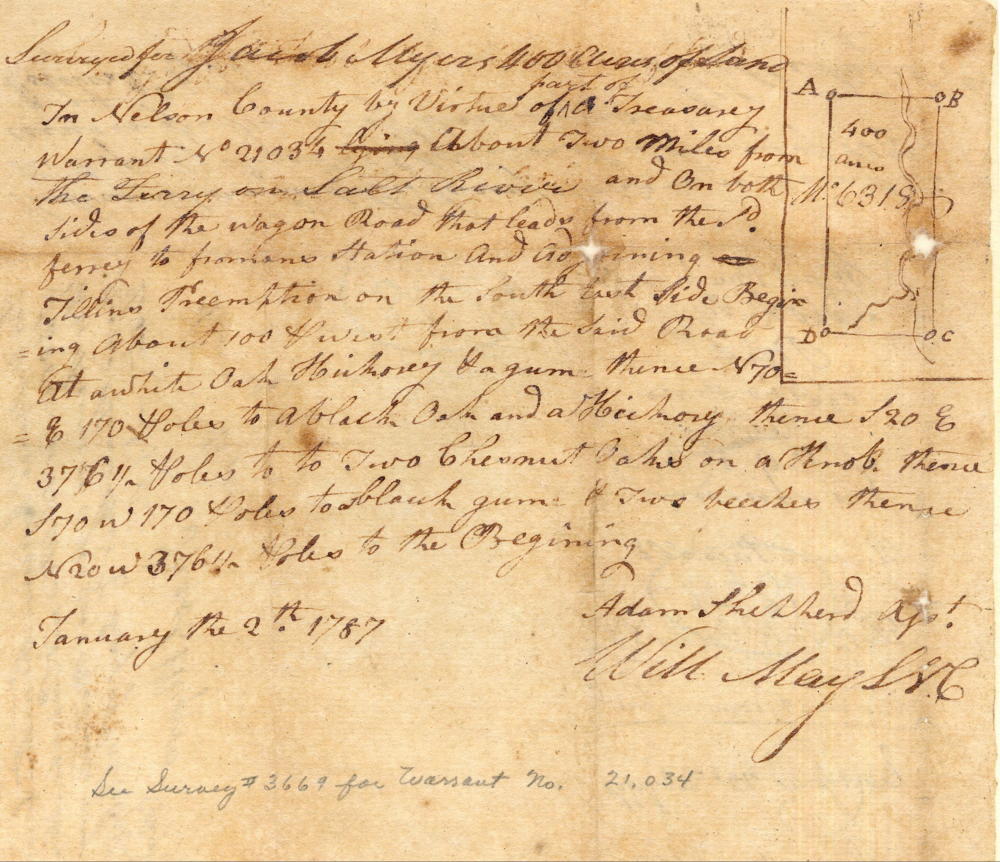 Surveyed for Jacob Myers 400 Acres of Land
In Nelson County by Virtue of part of a Treasurey
Warrant No 21034 lying About Two Miles from
the Ferry on Salt River and On both
sides of the wagon Road that leads from the sd.
ferrey to fromans Station And Adjoining
Tillins Preemption on the South East Side Begin
=ing About 100 P west from the Said Road
At a white Oak Hickorey & a gum thence N70=
=E 170 Poles to a black Oak and a Hickory thence S20 E
376 1/2 Poles to to Two Chesnut Oaks on a Knob thence
S70 W 170 Poles to a black gum & Two beeches thence
N20 W 376 1/2 Poles to the Begining
January the 2th 1787
Adam Shepherd Asst.
Will May S N C
A
B
400
acres
No 6318
D
C
See Survey # 3669 for Warrant No. 21,034